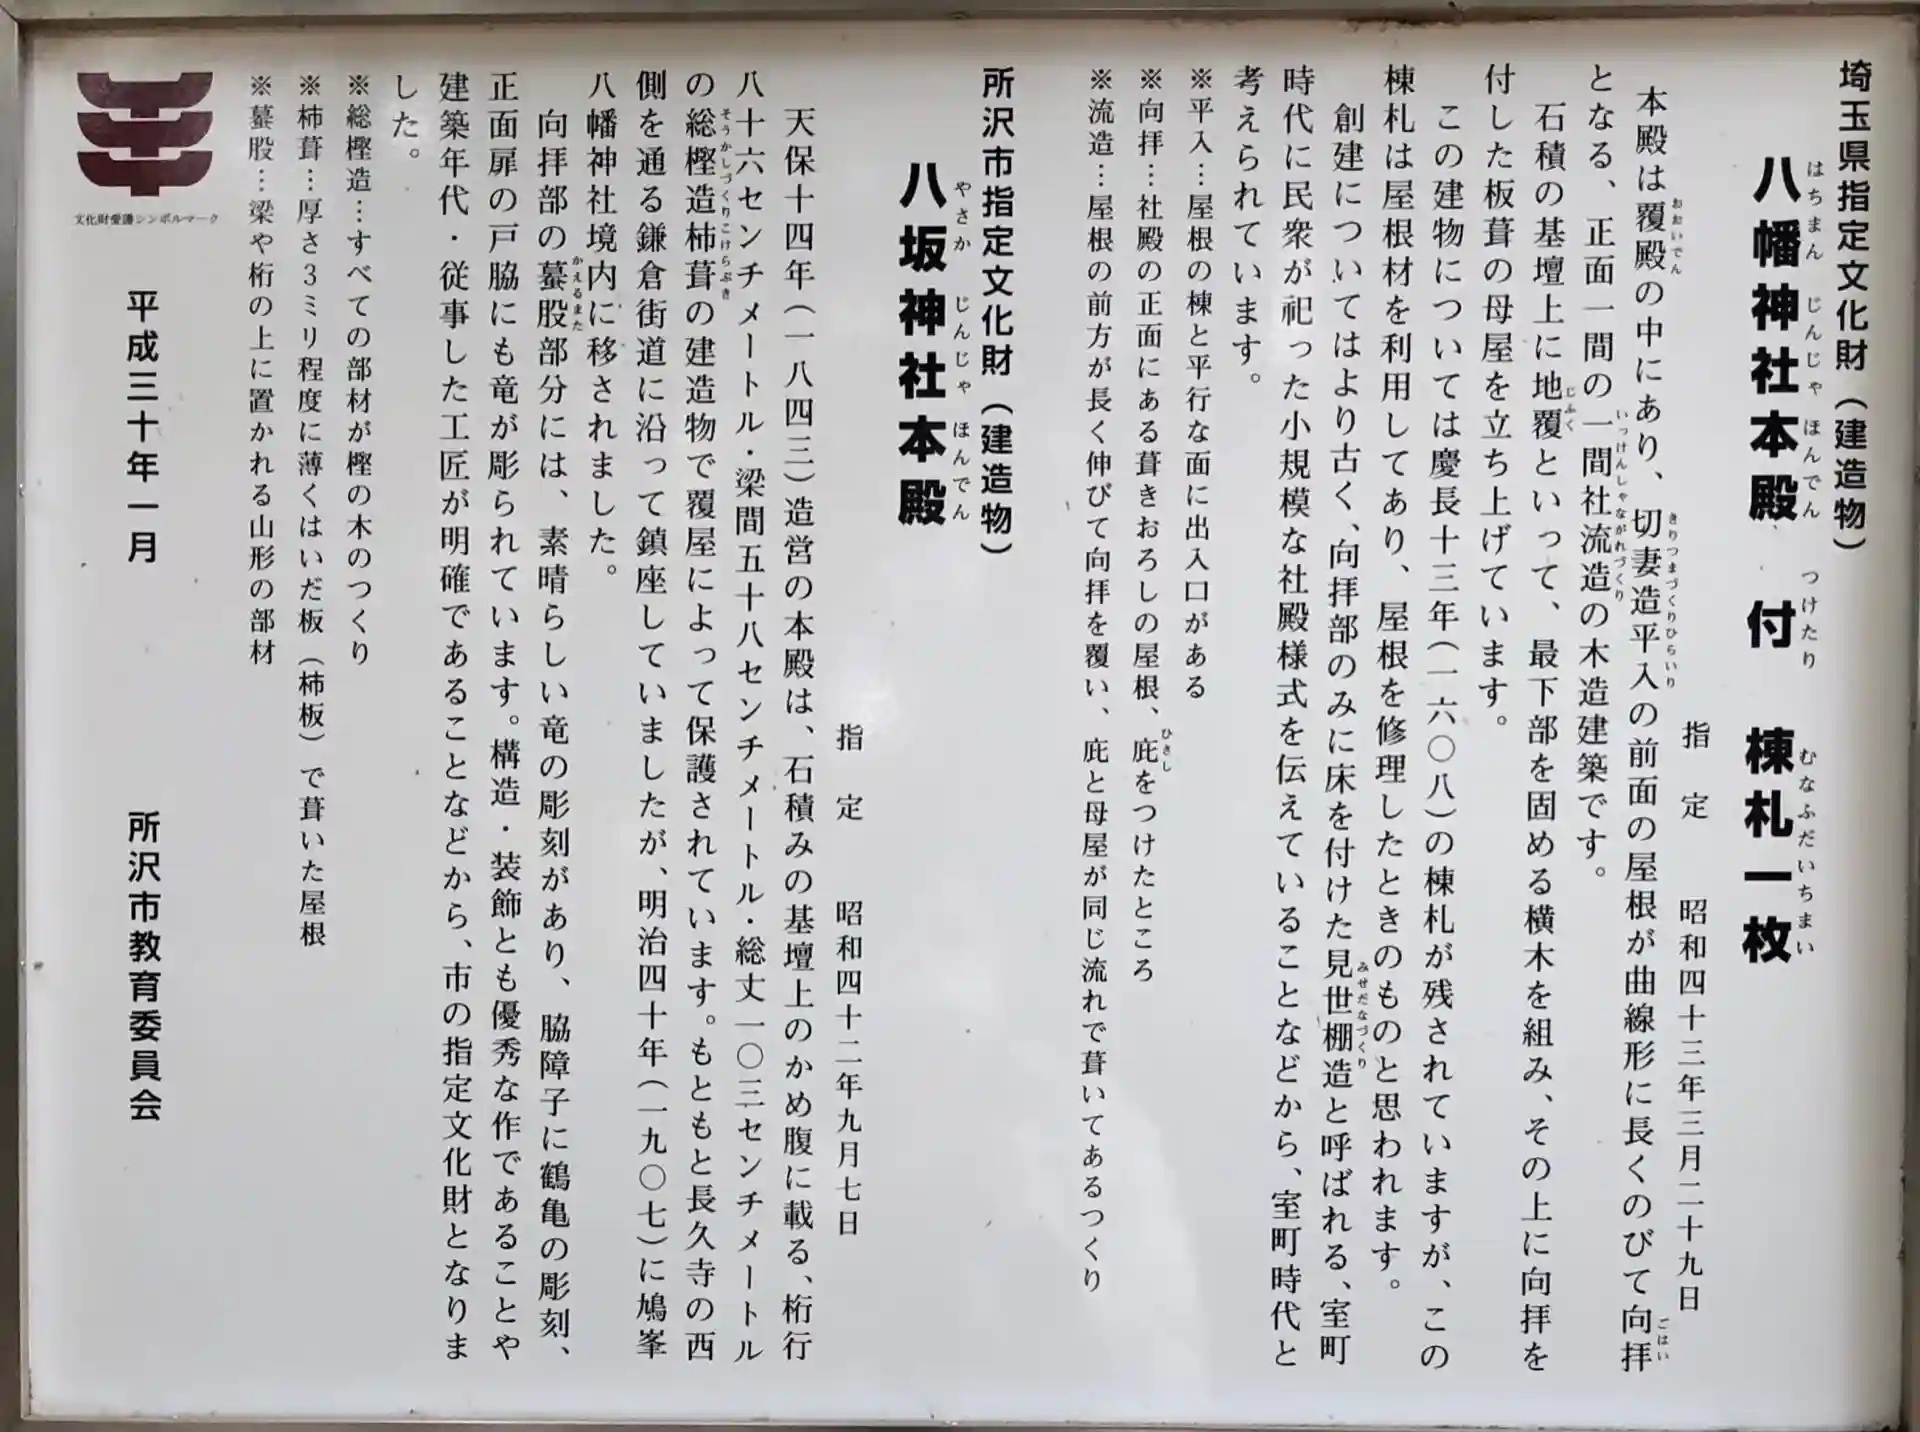 埼玉県指定文化財（建造物）
八幡神社本殿　付　棟札一枚
はちまん じんじゃ ほんでん つけたり むなふだいちまい
指定　昭和四十三年三月二十九日
本殿は覆殿の中にあり、切妻造平入の前面の屋根が曲線形に長くのびて向拝
おおいでん きりつまづくりひらいり ごはい
となる、正面一間の一間社流造の木造建築です。
いっけんしゃながれづくり
石積の基壇上に地覆といって、最下部を固める横木を組み、その上に向拝を
じふく
付した板葺の母屋を立ち上げています。
この建物については慶長十三年（一六〇八）の棟札が残されていますが、この
棟札は屋根材を利用してあり、屋根を修理したときのものと思われます。
創建についてはより古く、向拝部のみに床を付けた見世棚造と呼ばれる、室町
みせだなづくり
時代に民衆が祀った小規模な社殿様式を伝えていることなどから、室町時代と
考えられています。
※平入…屋根の棟と平行な面に出入口がある
※向拝…社殿の正面にある葺きおろしの屋根、庇をつけたところ
ひさし
※流造…屋根の前方が長く伸びて向拝を覆い、庇と母屋が同じ流れで葺いてあるつくり
所沢市指定文化財（建造物）
八坂神社本殿
やさか じんじゃ ほんでん
指定　昭和四十二年九月七日
天保十四年（一八四三）造営の本殿は、石積みの基壇上のかめ腹に載る、桁行
八十六センチメートル・梁間五十八センチメートル・総丈一〇三センチメートル
の総欅造柿葺の建造物で覆屋によって保護されています。もともと長久寺の西
そうかしづくりこけらぶき
側を通る鎌倉街道に沿って鎮座していましたが、明治四十年（一九〇七）に鳩峯
八幡神社境内に移されました。
向拝部の蟇股部分には、素晴らしい竜の彫刻があり、脇障子に鶴亀の彫刻、
かえるまた
正面扉の戸脇にも竜が彫られています。構造・装飾とも優秀な作であることや
建築年代・従事した工匠が明確であることなどから、市の指定文化財となりま
した。
※総樫造…すべての部材が樫の木のつくり
※柿葺…厚さ３ミリ程度に薄くはいだ板（柿板）で葺いた屋根
※蟇股…梁や桁の上に置かれる山形の部材
文化財愛護シンボルマーク
平成三十年一月　所沢市教育委員会